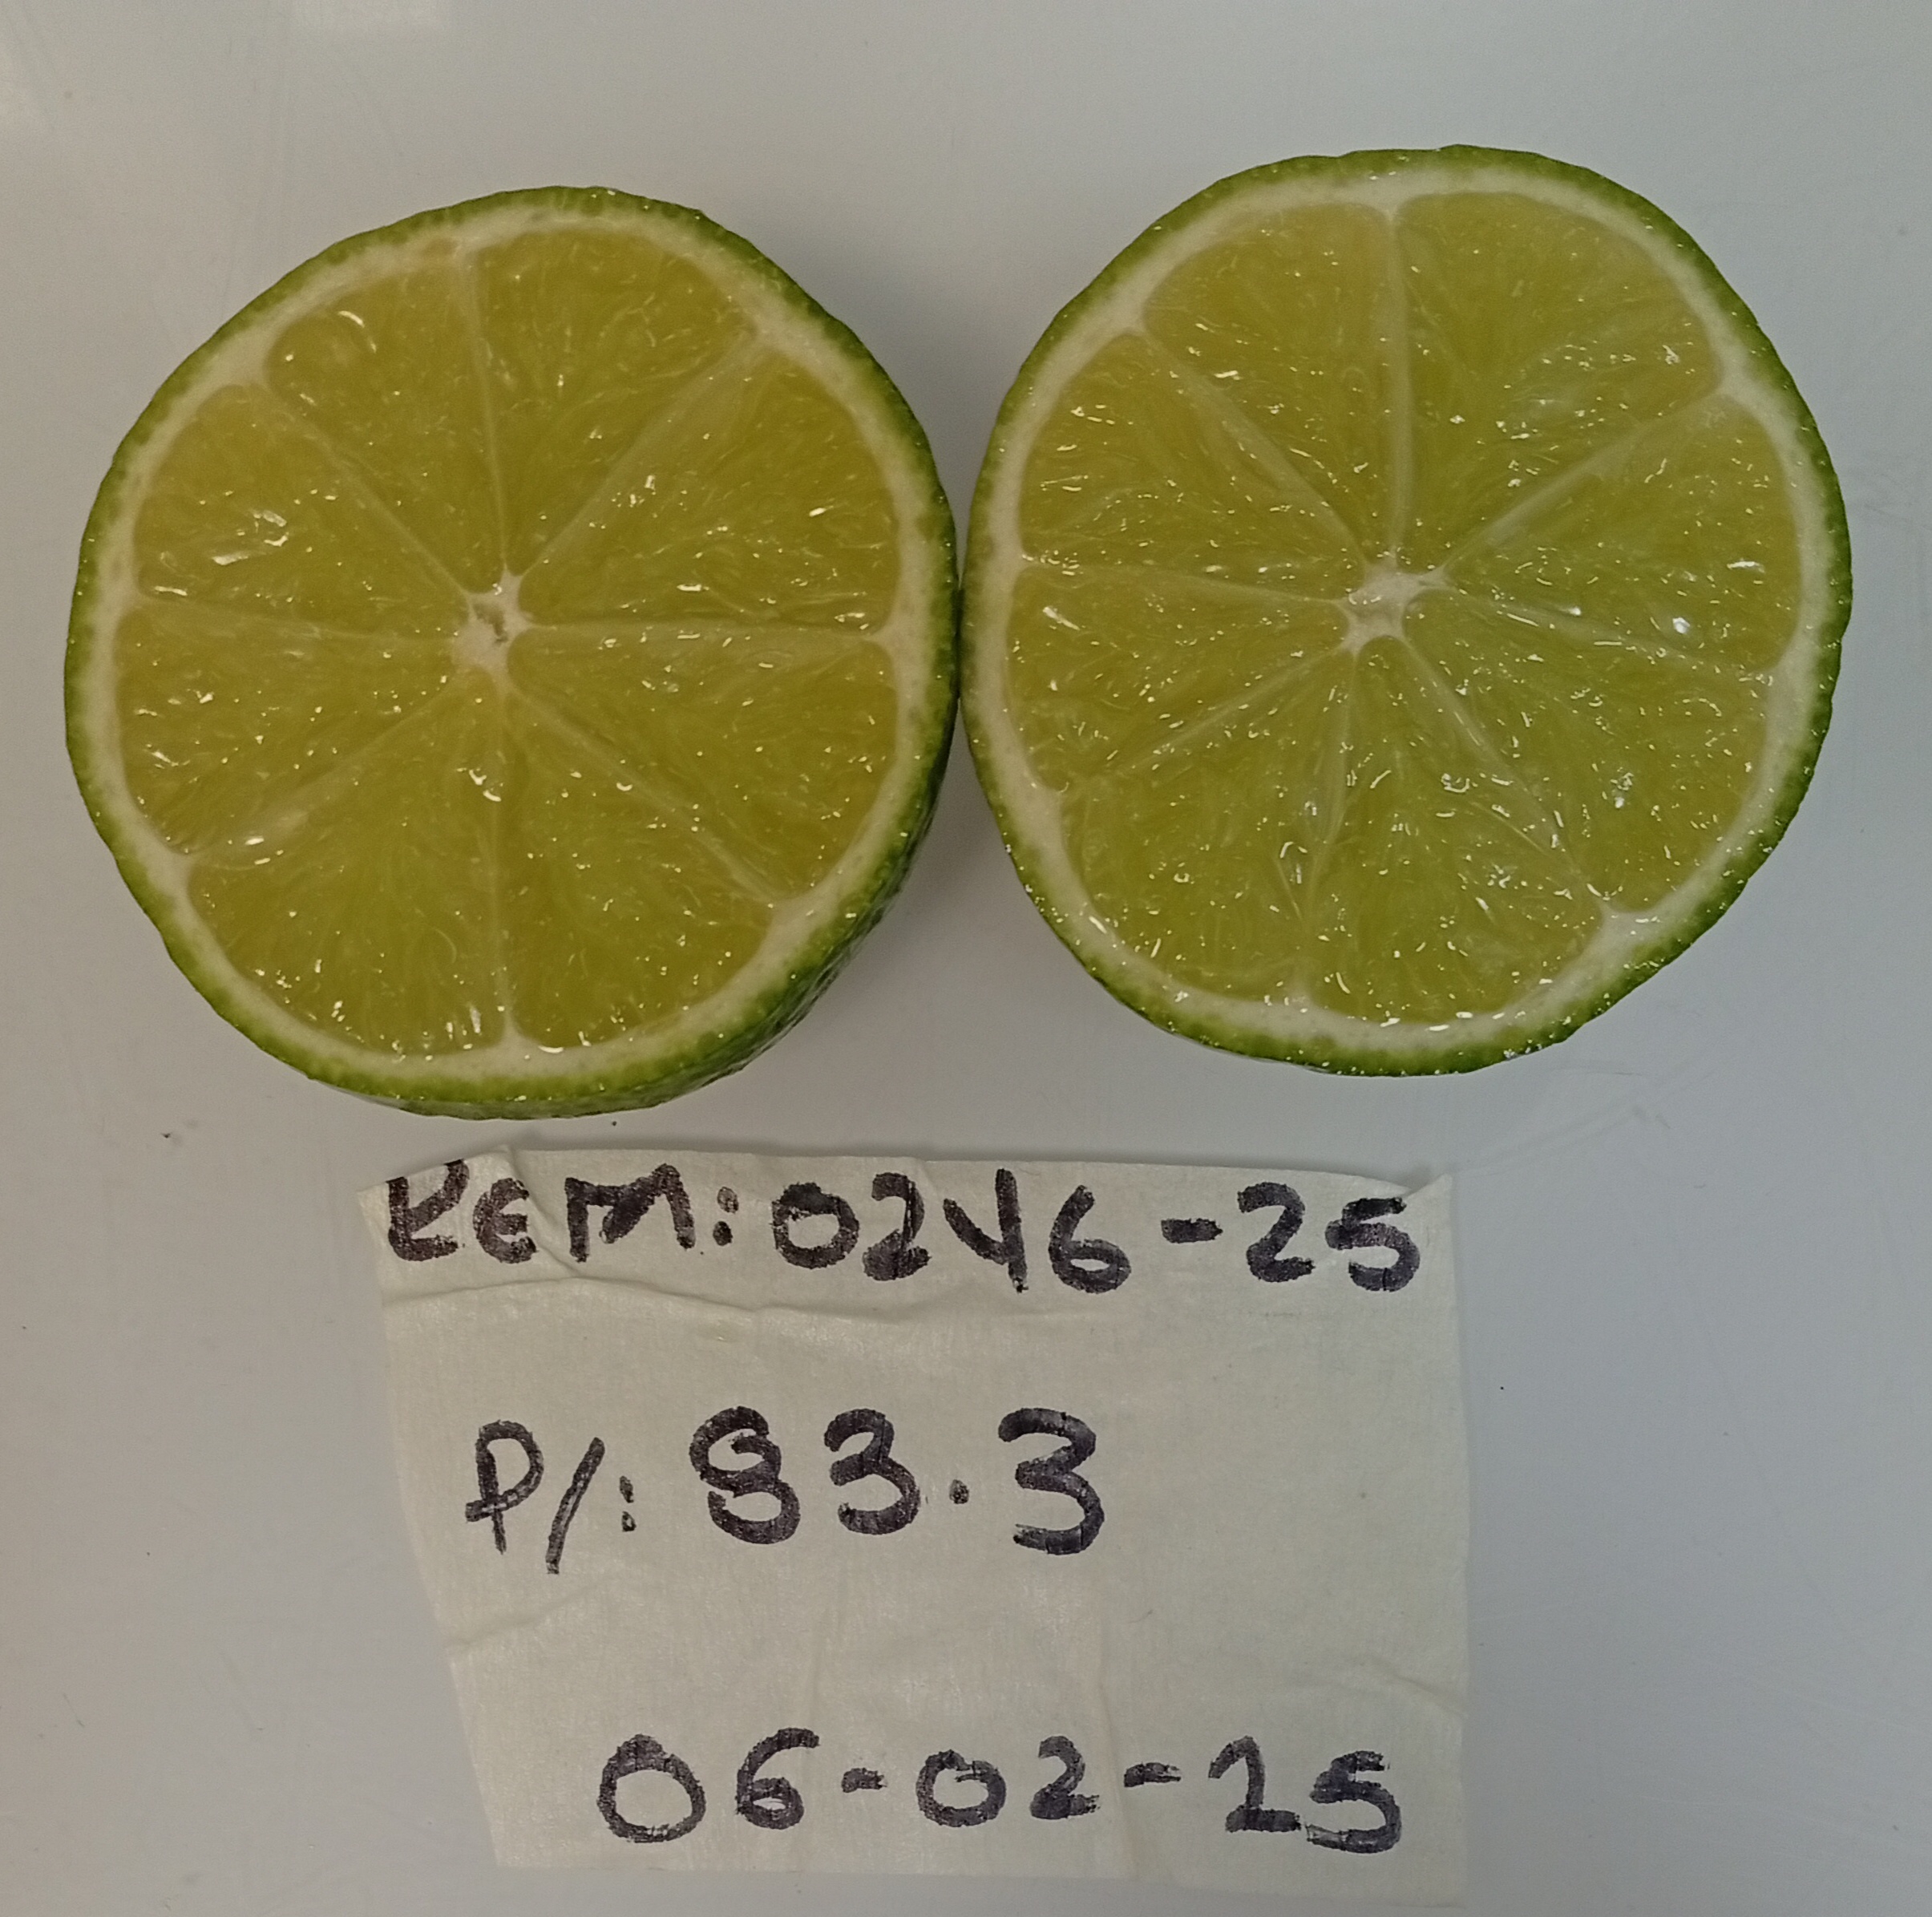 REM: 0246-25
P/: 83.3
06-02-25